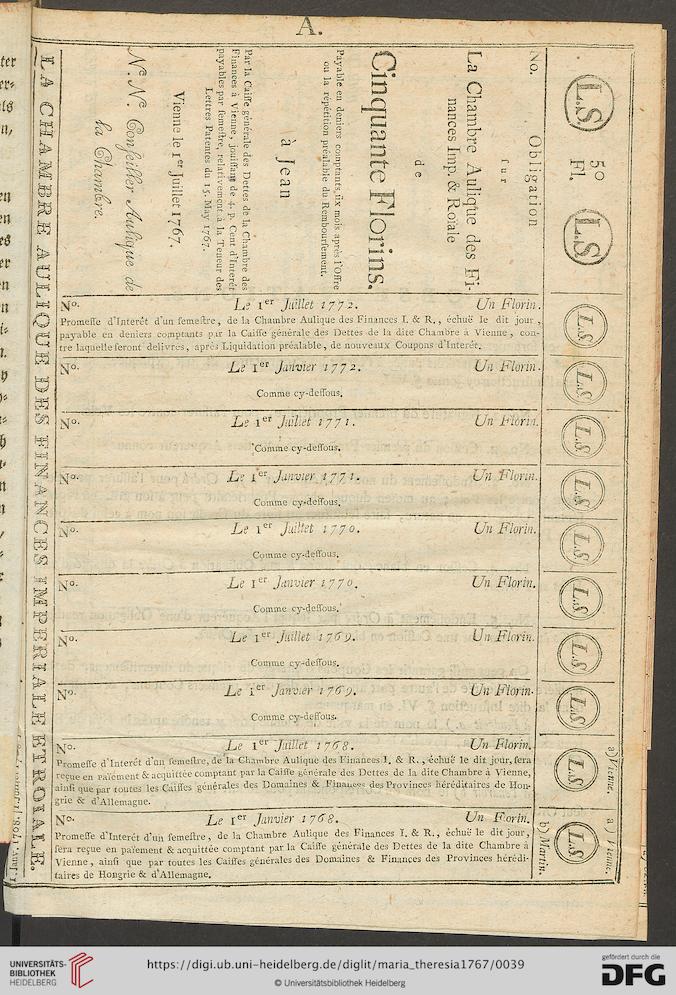 A.
LA CHAMBRE AULIQUE DES FINANCES IMPERIALE ET ROIALE.
L.S
50
Fl.
L.S
No. Obligation
sur
La Chambre Aulique des Fi-
nances Imp. & Roïale
de
Cinquante Florins.
Payable en deniers comptants, six mois après l'Offre
ou la répétition préalable du Remboursement.
à Jean
Par la Caisse générale des Dettes de la Chambre des
Finances à Vienne, jouissant de 4. p. Cent d'Interêt
payables par semestre, relativement à la Teneur des
Lettres Patentes du 15. May 1767.
Vienne le 1er Juillet 1767.
Nc. Nc. Conseiller Aulique de
la Chambre.
No. Le 1er Juillet 1772. Un Florin. L.S
Promesse d'Interêt d'un semestre, de la Chambre Aulique des Finances I. & R., échuë le dit jour,
payable en deniers comptants par la Caisse générale des Dettes de la dite Chambre à Vienne, con-
tre laquelle seront delivrés, après Liquidation préalable, de nouveaux Coupons d'Interêt.
No. Le 1er Janvier 1772. Un Florin. L.S
Comme cy-dessous.
No. Le 1er Juillet 1771. Un Florin. L.S
Comme cy-dessous.
No. Le 1er Janvier 1771. Un Florin. L.S
Comme cy-dessous.
No. Le 1er Juillet 1770. Un Florin. L.S
Comme cy-dessous.
No. Le 1er Janvier 1770. Un Florin. L.S
Comme cy-dessous.
No. Le 1er Juillet 1769. Un Florin. L.S
Comme cy-dessous.
No. Le 1er Janvier 1769. Un Florin. L.S
Comme cy-dessous.
No. Le 1er Juillet 1768. Un Florin. L.S a) Vienne.
Promesse d'Interêt d'un semestre, de la Chambre Aulique des Finances I. & R., échuë le dit jour, sera
reçue en païement & acquittée comptant par la Caisse générale des Dettes de la dite Chambre à Vienne,
ainsi que par toutes les Caisses générales des Domaines & Finances des Provinces héréditaires de Hon-
grie & d'Allemagne.
No. Le 1er Janvier 1768. Un Forin. b) Martin. L.S a) Vienne.
Promesse d'Interêt d'un semestre, de la Chambre Aulique des Finances I. & R., échuë le dit jour,
sera reçue en païement & acquittée comptant par la Caisse générale des Dettes de la dite Chambre à
Vienne, ainsi que par toutes les Caisses générales des Domaines & Finances des Provinces hérédi-
taires de Hongrie & d'Allemagne.
UNIVERSITÄTS-
BIBLIOTHEK
HEIDELBERG
https://digi.ub.uni-heidelberg.de/diglit/maria_theresia1767/0039
© Universitätsbibliothek Heidelberg
gefördert durch die
DFG